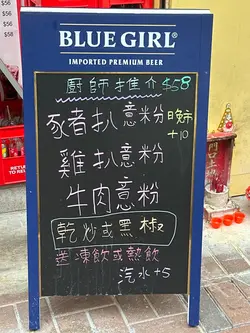 $56
$56
$58
BLUE GIRL®
IMPORTED PREMIUM BEER
廚師推介$58
豬扒意粉 晚市
+10
雞扒意粉
牛肉意粉
乾炒或黑椒
送凍飲或熱飲
汽水+5